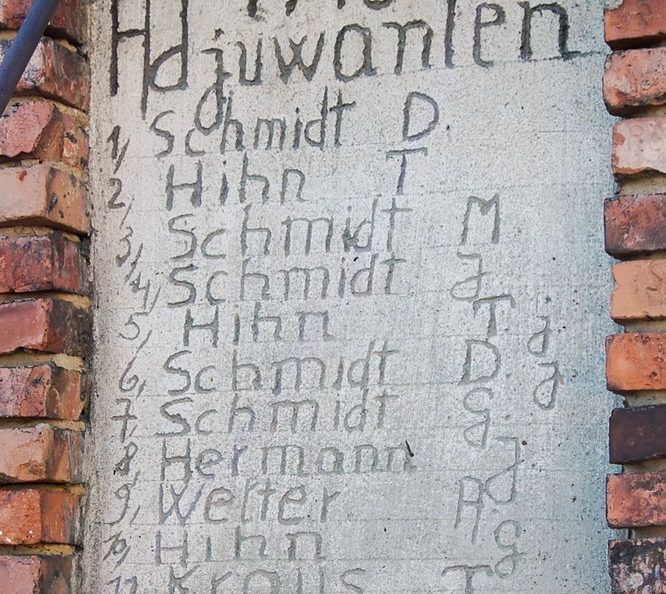 Adjuwanten
1, Schmidt D.
2, Hihn T
3, Schmidt M
4, Schmidt J
5, Hihn T j
6, Schmidt D. j
7, Schmidt G.
8, Hermann J
9, Welter A.
10, Hihn g
11 Kraus T